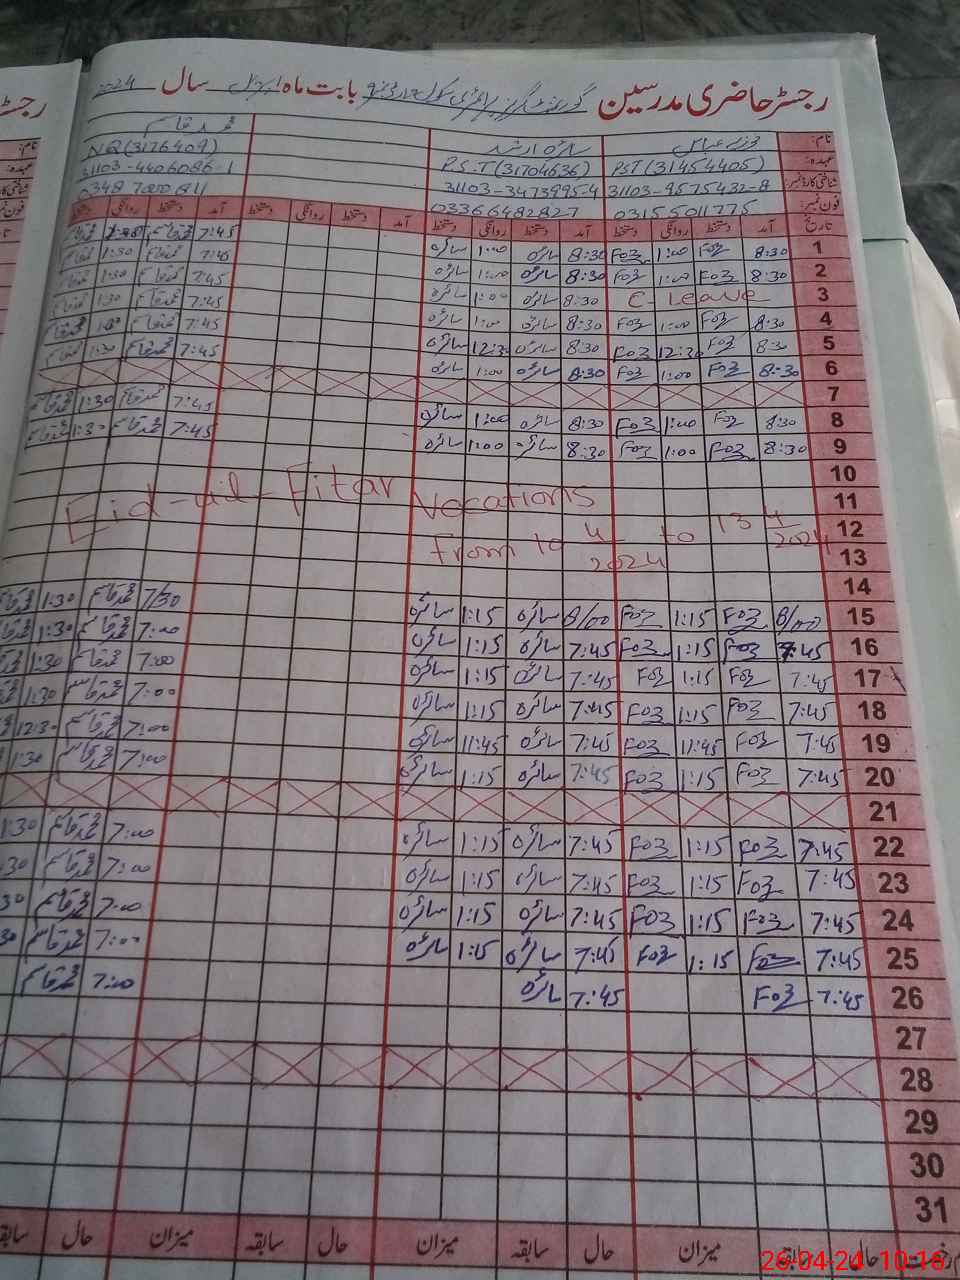 رجسٹر حاضری مدرسین گورنمنٹ گرلز پرائمری سکول بابت ماہ اپریل سال 2024
نام: فوزیہ عباس سائرہ ارشد محمد قاسم
عہدہ: PST (31454405) P.S.T (31704636) N.Q (3176409)
شناختی کارڈ نمبر: 31103-9575432-8 31103-3473995-4 31103-4406086-1
فون نمبر: 03155011775 03366482827
تاریخ آمد دستخط روانگی دستخط آمد دستخط روانگی دستخط آمد دستخط روانگی دستخط آمد دستخط روانگی دستخط
1 8:30 Foz 1:00 Foz 8:30 سائرہ 1:00 سائرہ 7:45 محمد قاسم
2 8:30 Foz 1:00 Foz 8:30 سائرہ 1:00 سائرہ 7:45 محمد قاسم 1:30 محمد قاسم
3 C-Leave 8:30 سائرہ 1:00 سائرہ 7:45 محمد قاسم 1:30 محمد قاسم
4 8:30 Foz 1:00 Foz 8:30 سائرہ 1:00 سائرہ 7:45 محمد قاسم 1:30 محمد قاسم
5 8:30 Foz 12:30 Foz 8:30 سائرہ 12:30 سائرہ 7:45 محمد قاسم
6 8:30 Foz 1:00 Foz 8:30 سائرہ 1:00 سائرہ 7:45 محمد قاسم 1:30 محمد قاسم
7
8 8:30 Foz 1:00 Foz 8:30 سائرہ 1:00 سائرہ 7:45 محمد قاسم 1:30 محمد قاسم
9 8:30 Foz 1:00 Foz 8:30 سائرہ 1:00 سائرہ 7:45 محمد قاسم 1:30 محمد قاسم
10
11
Eid-ul-Fitar Vocations
12
from 10 4/2024 to 13 4/2024
13
14
15 8/00 Foz 1:15 Foz 8/00 سائرہ 1:15 سائرہ 7/30 محمد قاسم 1:30 محمد قاسم
16 7:45 Foz 1:15 Foz 7:45 سائرہ 1:15 سائرہ 7:00 محمد قاسم 1:30 محمد قاسم
17 7:45 Foz 1:15 Foz 7:45 سائرہ 1:15 سائرہ 7:00 محمد قاسم 1:30 محمد قاسم
18 7:45 Foz 1:15 Foz 7:45 سائرہ 1:15 سائرہ 7:00 محمد قاسم 1:30
19 7:45 Foz 11:45 Foz 7:45 سائرہ 11:45 سائرہ 7:00 محمد قاسم 12:30
20 7:45 Foz 1:15 Foz 7:45 سائرہ 1:15 سائرہ 7:00 محمد قاسم 1:30
21
22 7:45 Foz 1:15 Foz 7:45 سائرہ 1:15 سائرہ 7:00 محمد قاسم 1:30
23 7:45 Foz 1:15 Foz 7:45 سائرہ 1:15 سائرہ 7:00 محمد قاسم :30
24 7:45 Foz 1:15 Foz 7:45 سائرہ 1:15 سائرہ 7:00 محمد قاسم 30
25 7:45 Foz 1:15 Foz 7:45 سائرہ 1:15 سائرہ 7:00 محمد قاسم 30
26 7:45 Foz 7:45 سائرہ 7:00 محمد قاسم
27
28
29
30
31
حال سابقہ میزان حال سابقہ میزان حال سابقہ میزان حال سابقہ
26-04-24 10:16